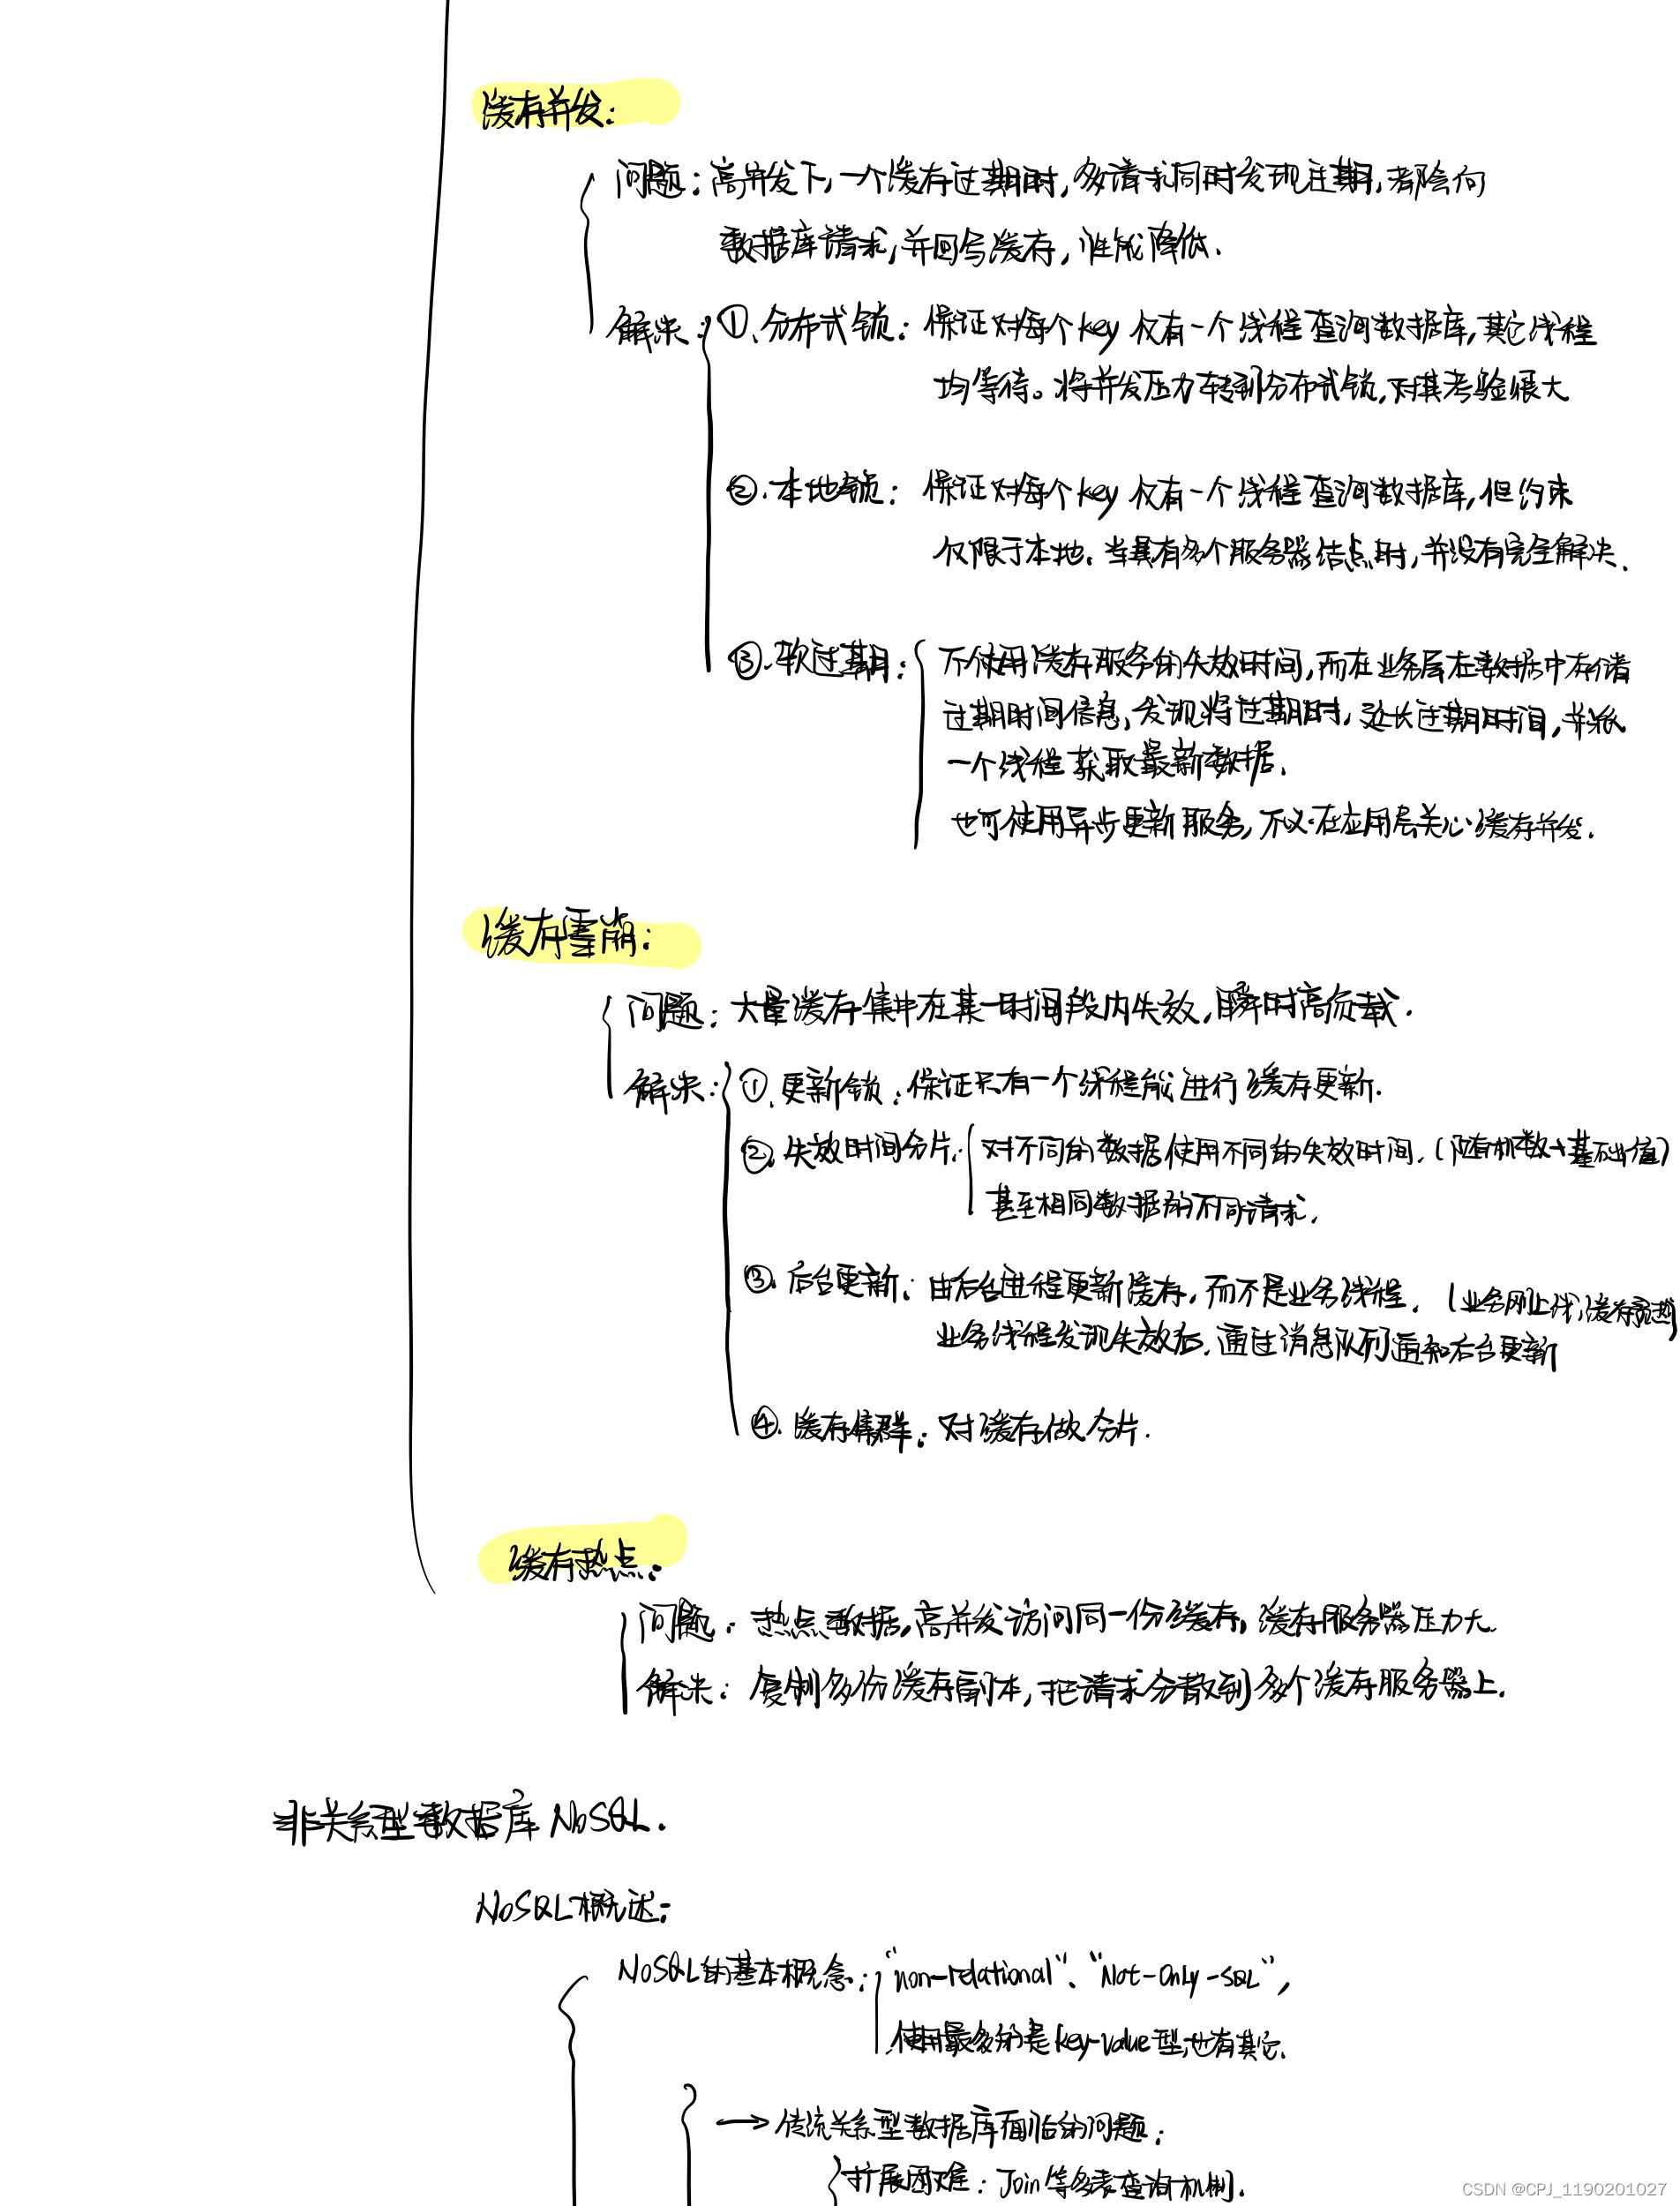 缓存并发:
问题:高并发下,一个缓存过期时,多请求同时发现过期,都会向
数据库请求,并回写缓存,性能降低.
解决: ①.分布式锁: 保证对每个key仅有一个线程查询数据库,其它线程
均等待。将并发压力转到分布式锁,对其考验很大
②.本地锁: 保证对每个key仅有一个线程查询数据库,但约束
仅限于本地.当具有多个服务器结点时,并没有完全解决.
③.软过期: 不使用缓存服务的失效时间,而在业务层在数据中存储
过期时间信息,发现将过期时,延长过期时间,并派
一个线程获取最新数据.
也可使用异步更新服务,不必在应用层关心缓存并发.
缓存雪崩:
问题:大量缓存集中在某一时间段内失效,瞬时高负载.
解决: ①.更新锁:保证只有一个线程能进行缓存更新.
②.失效时间分片: 对不同的数据使用不同的失效时间.(随机数+基础值)
甚至相同数据的不同请求.
③.后台更新:由后台进程更新缓存,而不是业务线程. (业务刚上线,缓存预热)
业务线程发现失效后.通过消息队列通知后台更新
④.缓存集群:对缓存做分片.
缓存热点:
问题:热点数据,高并发访问同一份缓存,缓存服务器压力大.
解决:复制多份缓存副本,把请求分散到多个缓存服务器上.
非关系型数据库 NoSQL.
NoSQL概述:
NoSQL的基本概念: "non-relational"、"Not-Only-SQL",
使用最多的是key-value型,也有其它.
→传统关系型数据库面临的问题:
扩展困难:Join等多表查询机制.
CSDN @CPJ_1190201027